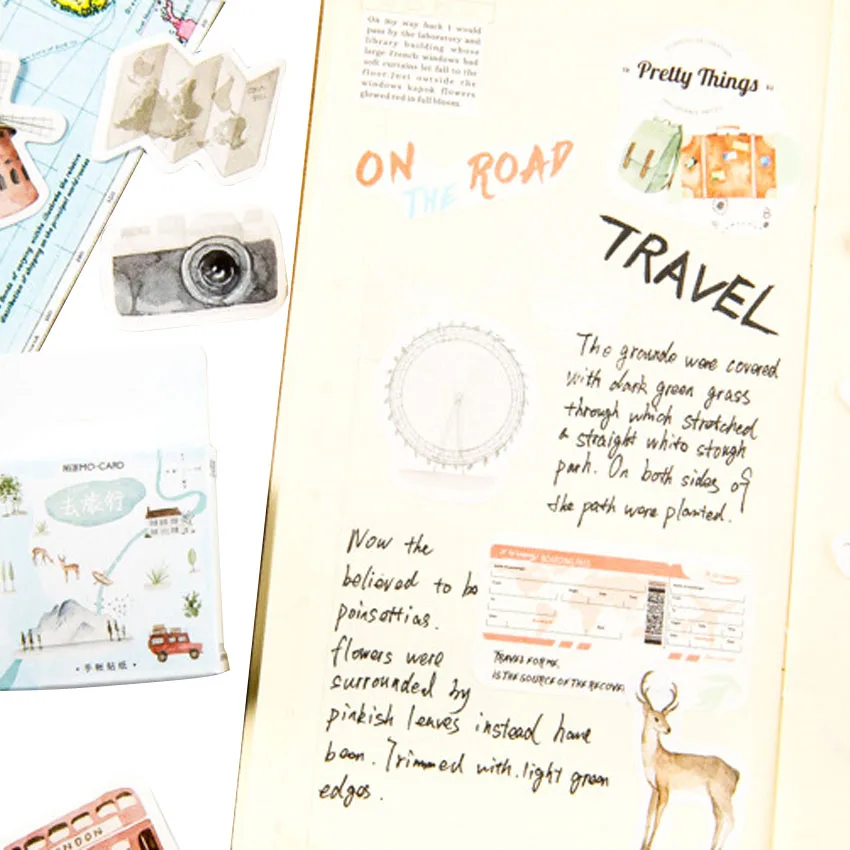 On my way back I would
pass by the laboratory and
library building whose
large French windows had
soft curtains let fall to the
floor. Just outside the
windows kapok flowers
glowed red in full bloom.
Pretty Things
ON THE ROAD
TRAVEL
The grounds were covered
with dark green grass
through which stretched
a straight white stough
parh. On both sides of
the path were planted.
Now the
believed to be
poinsettias.
flowers were
surrounded by
pinkish leaves instead have
been. Trimmed with. light green
edges.
BOARDING PASS
TRAVEL FOR ME,
IS THE SOURCE OF THE RECOVE
MO-CARD
去旅行
•手帐贴纸•
NDON